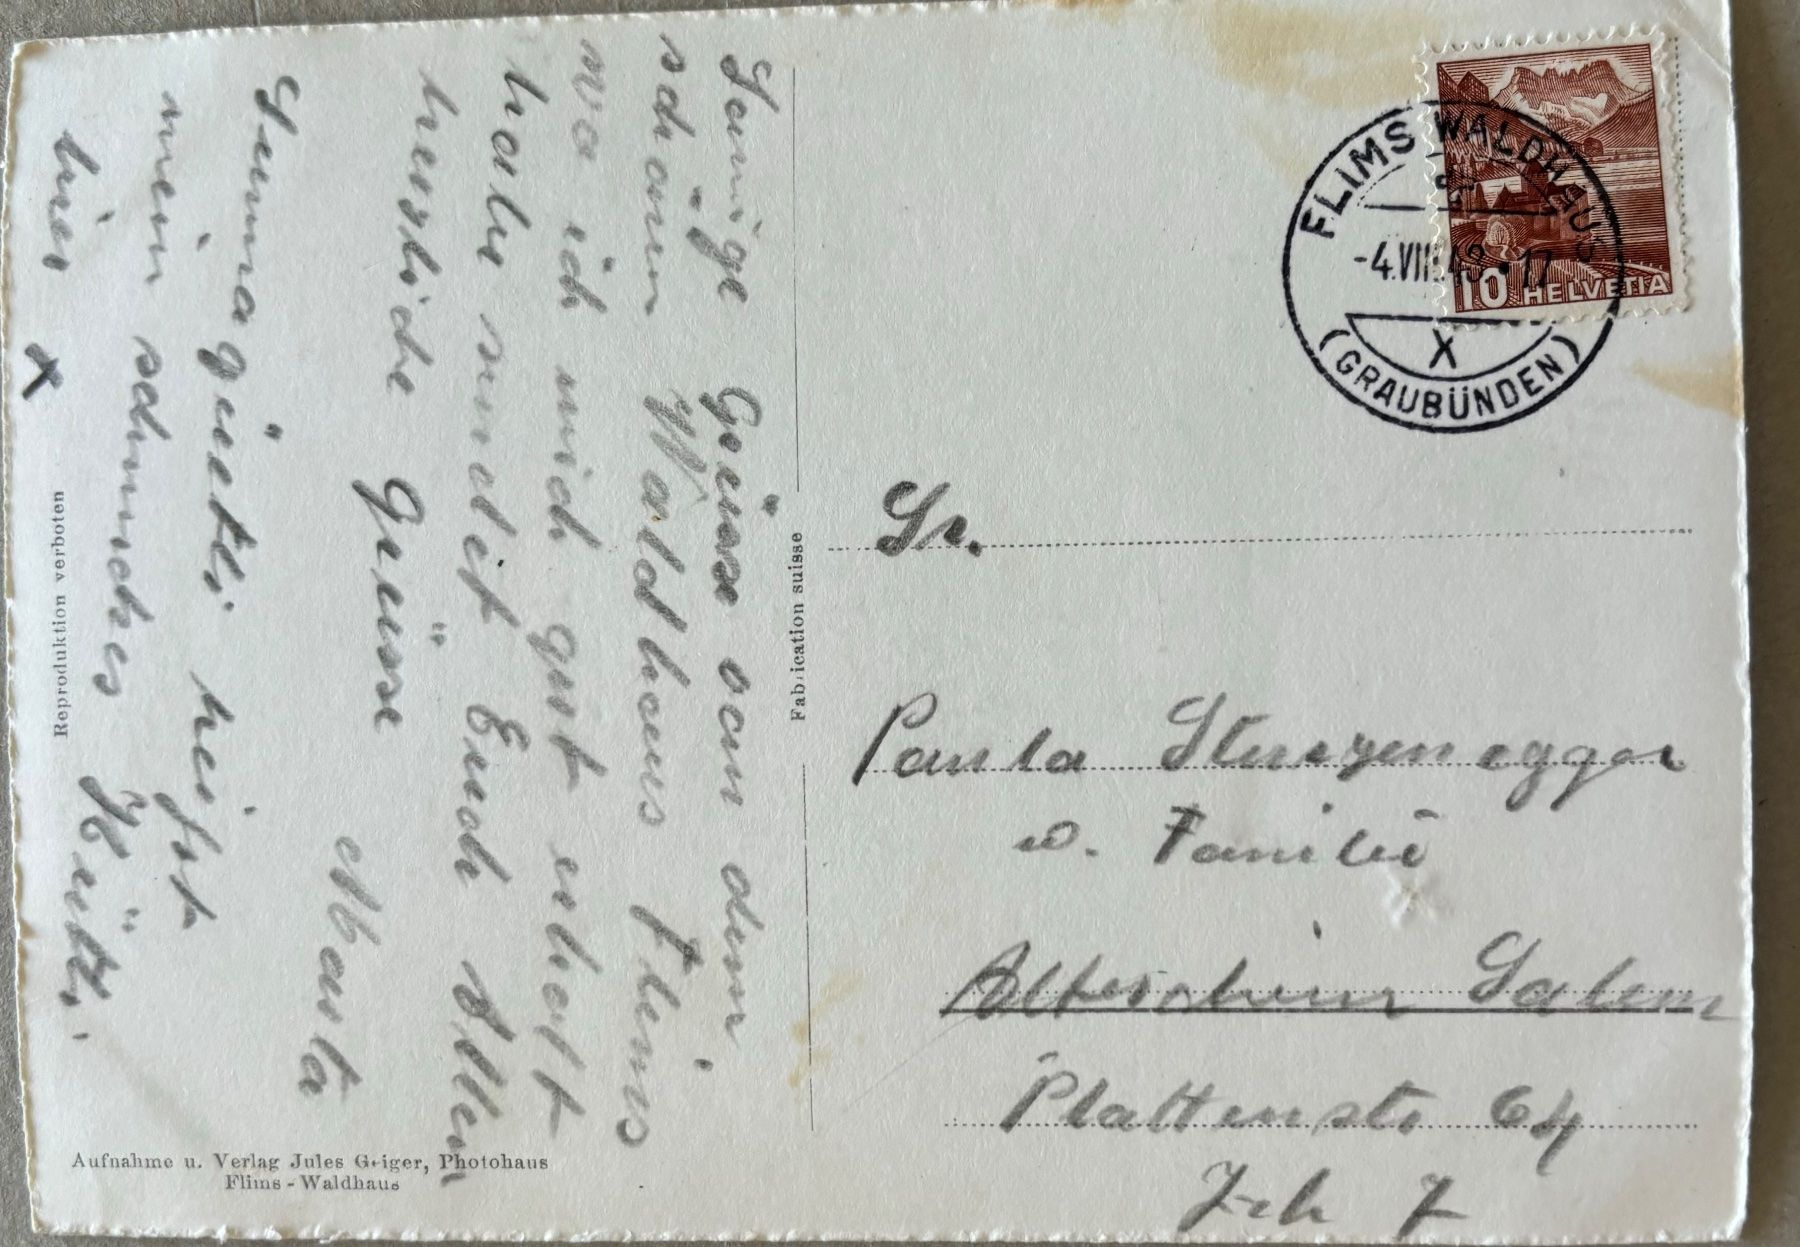 Sonnige Grüsse von dem
schönen Waldhaus Flims
wo ich mich gut erholt
habe sendet Euch Allen
herzliche Grüsse
Marta
Sunnagüetli heisst
mein schmuckes Hüttli.
hier x
Reproduktion verboten
Fabrication suisse
Aufnahme u. Verlag Jules Geiger, Photohaus
Flims - Waldhaus
FLIMS WALDHAUS
-4.VIII.48.•17
X
(GRAUBÜNDEN)
10 HELVETIA
Sr.
Paula Sturzenegger
u. Familie
Altersheim Salem
Plattenstr 64
Zch 7